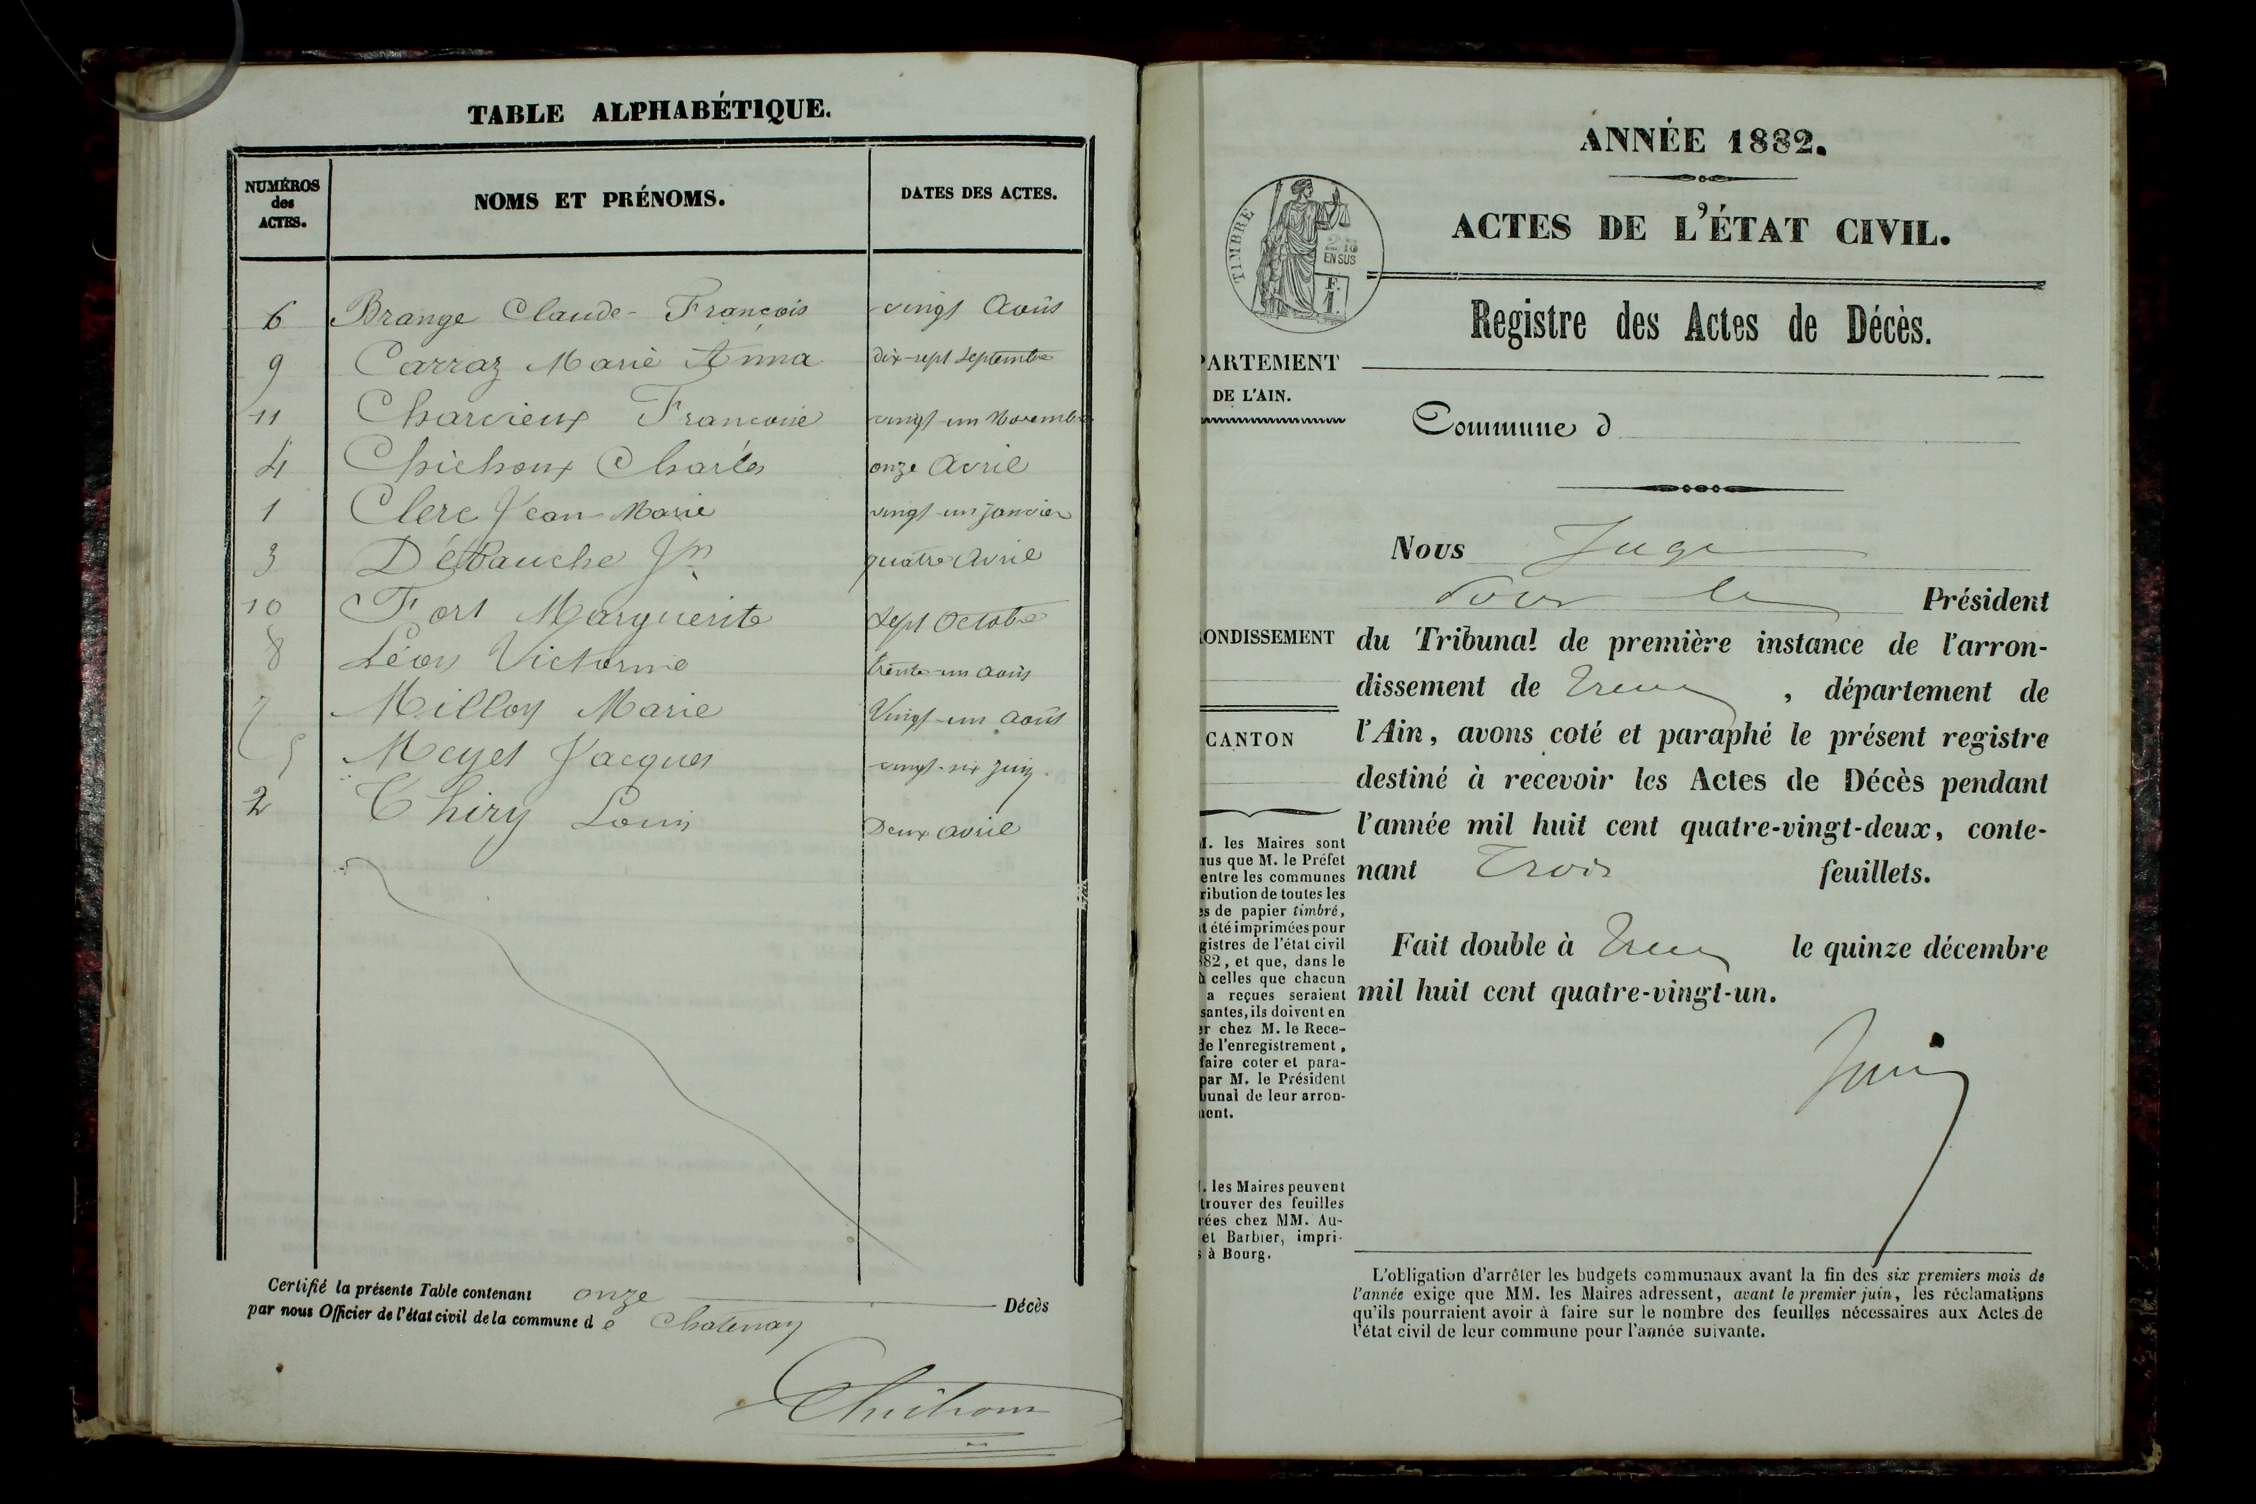 TABLE ALPHABÉTIQUE.
NUMÉROS des ACTES. NOMS ET PRÉNOMS. DATES DES ACTES.
6 Brange Claude-François vingt Août
9 Carraz Marie Anna dix-sept septembre
11 Charvieux Francoise vingt-un Novembre
4 Chichoux Charles onze Avril
1 Clerc Jean-Marie vingt-un janvier
3 Jn quatre Avril
10 Fort Marguerite sept Octobre
8 Léon Victorine trente-un août
7 Milloy Marie Vingt-un août
5 Meyet Jacques vingt-six juin
2 Thiry Louis Deux avril
Certifié la présente Table contenant onze Décès
par nous Officier de l'état civil de la commune de Chatenay
ANNÉE 1882.
ACTES DE L'ÉTAT CIVIL.
TIMBRE
EN SUS
F.
1.
Registre des Actes de Décès.
PARTEMENT
DE L'AIN.
Commune d
ONDISSEMENT
CANTON
M. les Maires sont
nus que M. le Préfet
entre les communes
ribution de toutes les
es de papier timbré,
t été imprimées pour
gistres de l'état civil
82, et que, dans le
à celles que chacun
a reçues seraient
santes, ils doivent en
er chez M. le Rece-
de l'enregistrement,
faire coter et para-
par M. le Président
bunal de leur arron-
ment.
. les Maires peuvent
trouver des feuilles
rées chez MM. Au-
et Barbier, impri-
s à Bourg.
Nous Juge
pour le Président
du Tribunal de première instance de l'arron-
dissement de , département de
l'Ain, avons coté et paraphé le présent registre
destiné à recevoir les Actes de Décès pendant
l'année mil huit cent quatre-vingt-deux, conte-
nant Trois feuillets.
Fait double à le quinze décembre
mil huit cent quatre-vingt-un.
L'obligation d'arrêter les budgets communaux avant la fin des six premiers mois de
l'année exige que MM. les Maires adressent, avant le premier juin, les réclamations
qu'ils pourraient avoir à faire sur le nombre des feuilles nécessaires aux Actes de
l'état civil de leur commune pour l'année suivante.